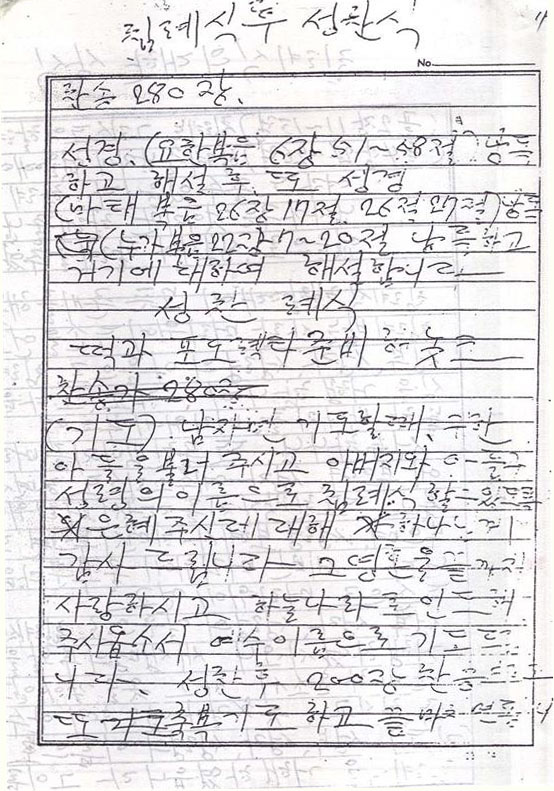 침례식후 성찬식
No.
찬송 280장.
성경. (요한복음 6장 51~58절) 낭독
하고 해설 후 또 성경
(마태복음 26장 17절 26절 27절) 낭독
(누가복음 22장 7~20절 낭독하고
거기에 대하여 해설합니다
성찬 예식
떡과 포도액 다 준비 해 놓고
찬송가 280장
(기도) 기도할때
아들을 불러 주시고 아버지와 아들과
성령의 이름으로 침례식 할 수 있도록
은혜 주신데 대해 하나님께
감사 드립니다 그 영혼을 끝까지
사랑하시고 하늘나라로 인도해
주시옵소서 예수 이름으로 기도드립
니다. 성찬후 200장 찬송
또 다 기도 하고